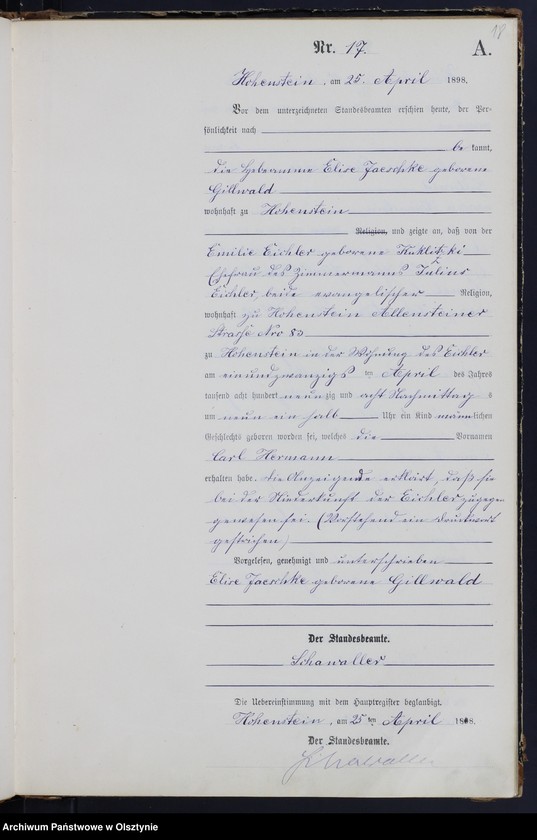 18
Nr. 17.
A.
Hohenstein, am 25. April 1898.
Vor dem unterzeichneten Standesbeamten erschien heute, der Per-
sönlichkeit nach
be kannt,
die Hebeamme Elise Jaeschke geborene
Gillwald
wohnhaft zu Hohenstein
Religion, und zeigte an, daß von der
Emilie Eichler geborene Kuklitzki
Ehefrau des Zimmermanns Julius
Eichler, beide evangelischer Religion,
wohnhaft zu Hohenstein Allensteiner
Straße Nro 83
zu Hohenstein in der Wohnung des Eichler
am einundzwanzigs ten April des Jahres
tausend acht hundert neunzig und acht Nachmittag s
um neun ein halb Uhr ein Kind männlichen
Geschlechts geboren worden sei, welches die Vornamen
Carl Hermann
erhalten habe. Die Anzeigende erklärt, daß sie
bei der Niederkunft der Eichler zugegen
gewesen sei. (Vorstehend ein Druckwort
gestrichen)
Vorgelesen, genehmigt und unterschrieben
Elise Jaeschke geborene Gillwald
Der Standesbeamte.
Schawaller
Die Uebereinstimmung mit dem Hauptregister beglaubigt.
Hohenstein, am 25 ten April 1898.
Der Standesbeamte.
Schawaller
Archiwum Państwowe w Olsztynie